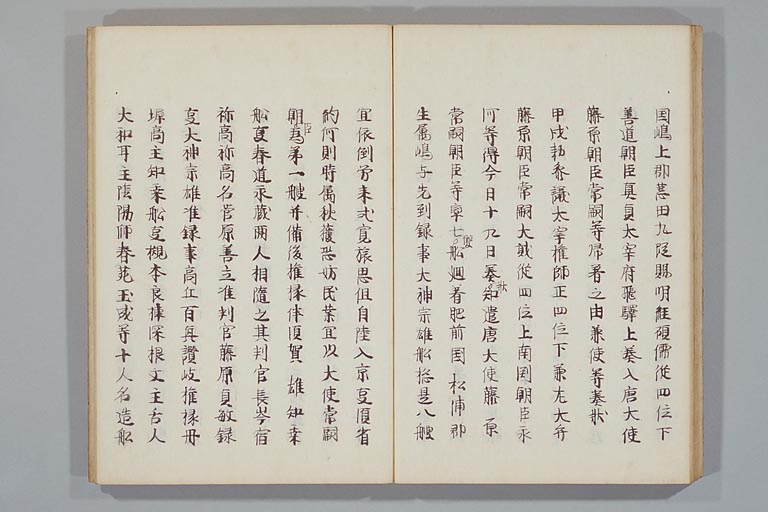 国嶋上郡荒田九段賜明経碩儒従四位下
善道朝臣真貞太宰府飛驛上奏入唐大使
藤原朝臣常嗣等帰著之由兼使等奏状
甲戌勅参議太宰権師正四位下兼左大弁
藤原朝臣常嗣大貳従四位上南渕朝臣永
河等得今日十九日奏状知遣唐大使藤原
常嗣朝臣等率七隻船廻着肥前国松浦郡
生属嶋与先到録事大神宗雄船惣是八艘
宜依例労来式寛旅思但自陸入京事須省
約何則時属秋獲恐妨民業宜以大使常嗣
朝臣為第一般并備後権掾伴須賀雄知乗
船事春道永蔵両人相随之其判官長岑宿
祢高祢高名菅原善主准判官藤原貞敏録
事大神宗雄准録事高丘百興讃岐権掾丹
墀高主知乗船事槻本良棒深根文主舌人
大和耳主陰陽師春苑玉成等十人各造船